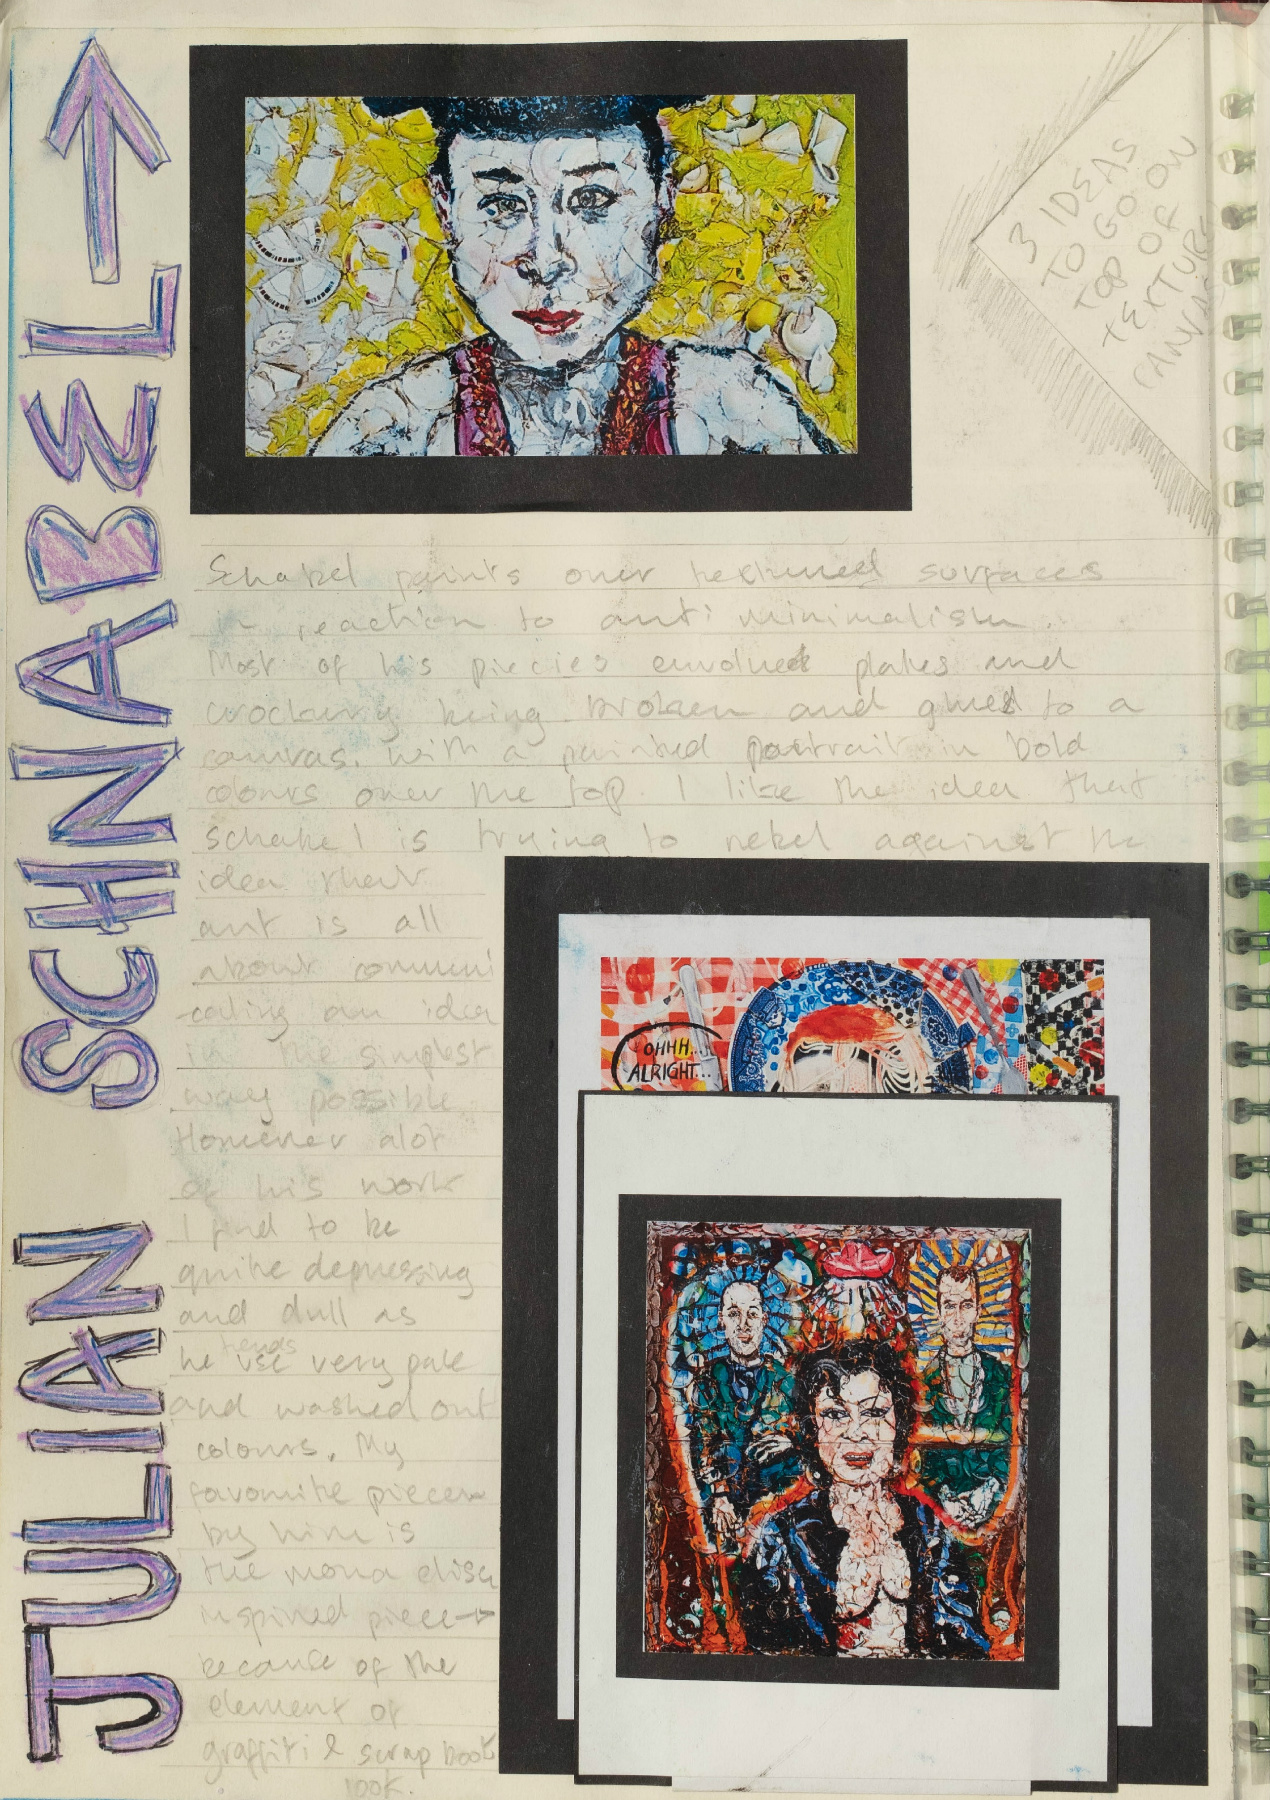 JULIAN SCHNABEL →
3 IDEAS
TO GO ON
TOP OF
TEXTURE
CANVAS
Schabel paints over textured surfaces
in reaction to anti minimalism.
Most of his piecies envolved plates and
crockery being broken and glued to a
canvas. with a painted portrait in bold
colours over the top. I like the idea that
schabel is trying to rebel against the
idea that
art is all
about communi
-cating an idea
in the simplest
way possible.
However alot
of his work
I find to be
quite depressing
and dull as
tends
he use very pale
and washed out
colours. My
favourite piece
by him is
the mona elisa
inspired piece →
because of the
element of
graffiti & scrap book
look.
OHHH...
ALRIGHT...